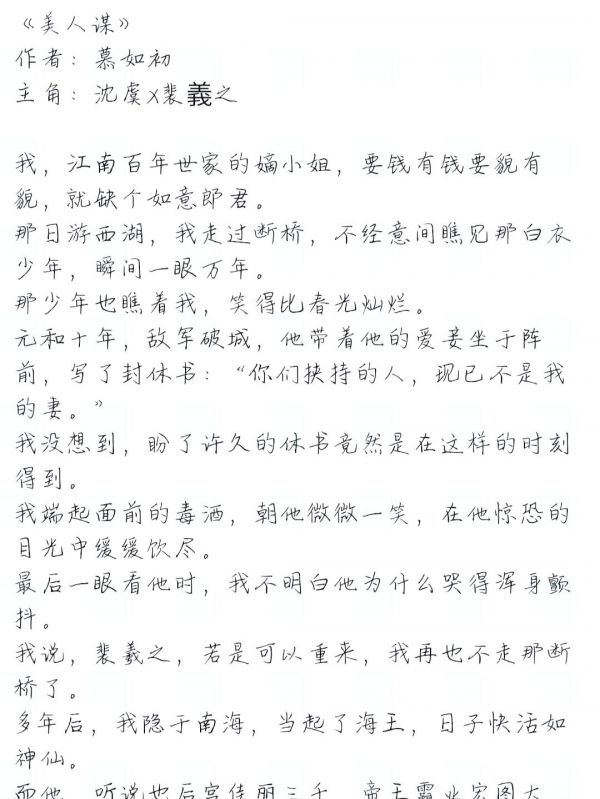 《美人谋》
作者：慕如初
主角：沈虞x裴義之
我，江南百年世家的嫡小姐，要钱有钱要貌有
貌，就缺个如意郎君。
那日游西湖，我走过断桥，不经意间瞧见那白衣
少年，瞬间一眼万年。
那少年也瞧着我，笑得比春光灿烂。
元和十年，敌军破城，他带着他的爱妾坐于阵
前，写了封休书：“你们挟持的人，现已不是我
的妻。”
我没想到，盼了许久的休书竟然是在这样的时刻
得到。
我端起面前的毒酒，朝他微微一笑，在他惊恐的
目光中缓缓饮尽。
最后一眼看他时，我不明白他为什么哭得浑身颤
抖。
我说，裴羲之，若是可以重来，我再也不走那断
桥了。
多年后，我隐于南海，当起了海王，日子快活如
神仙。
而他，听说他后宫佳丽三千，帝王霸业宏图大